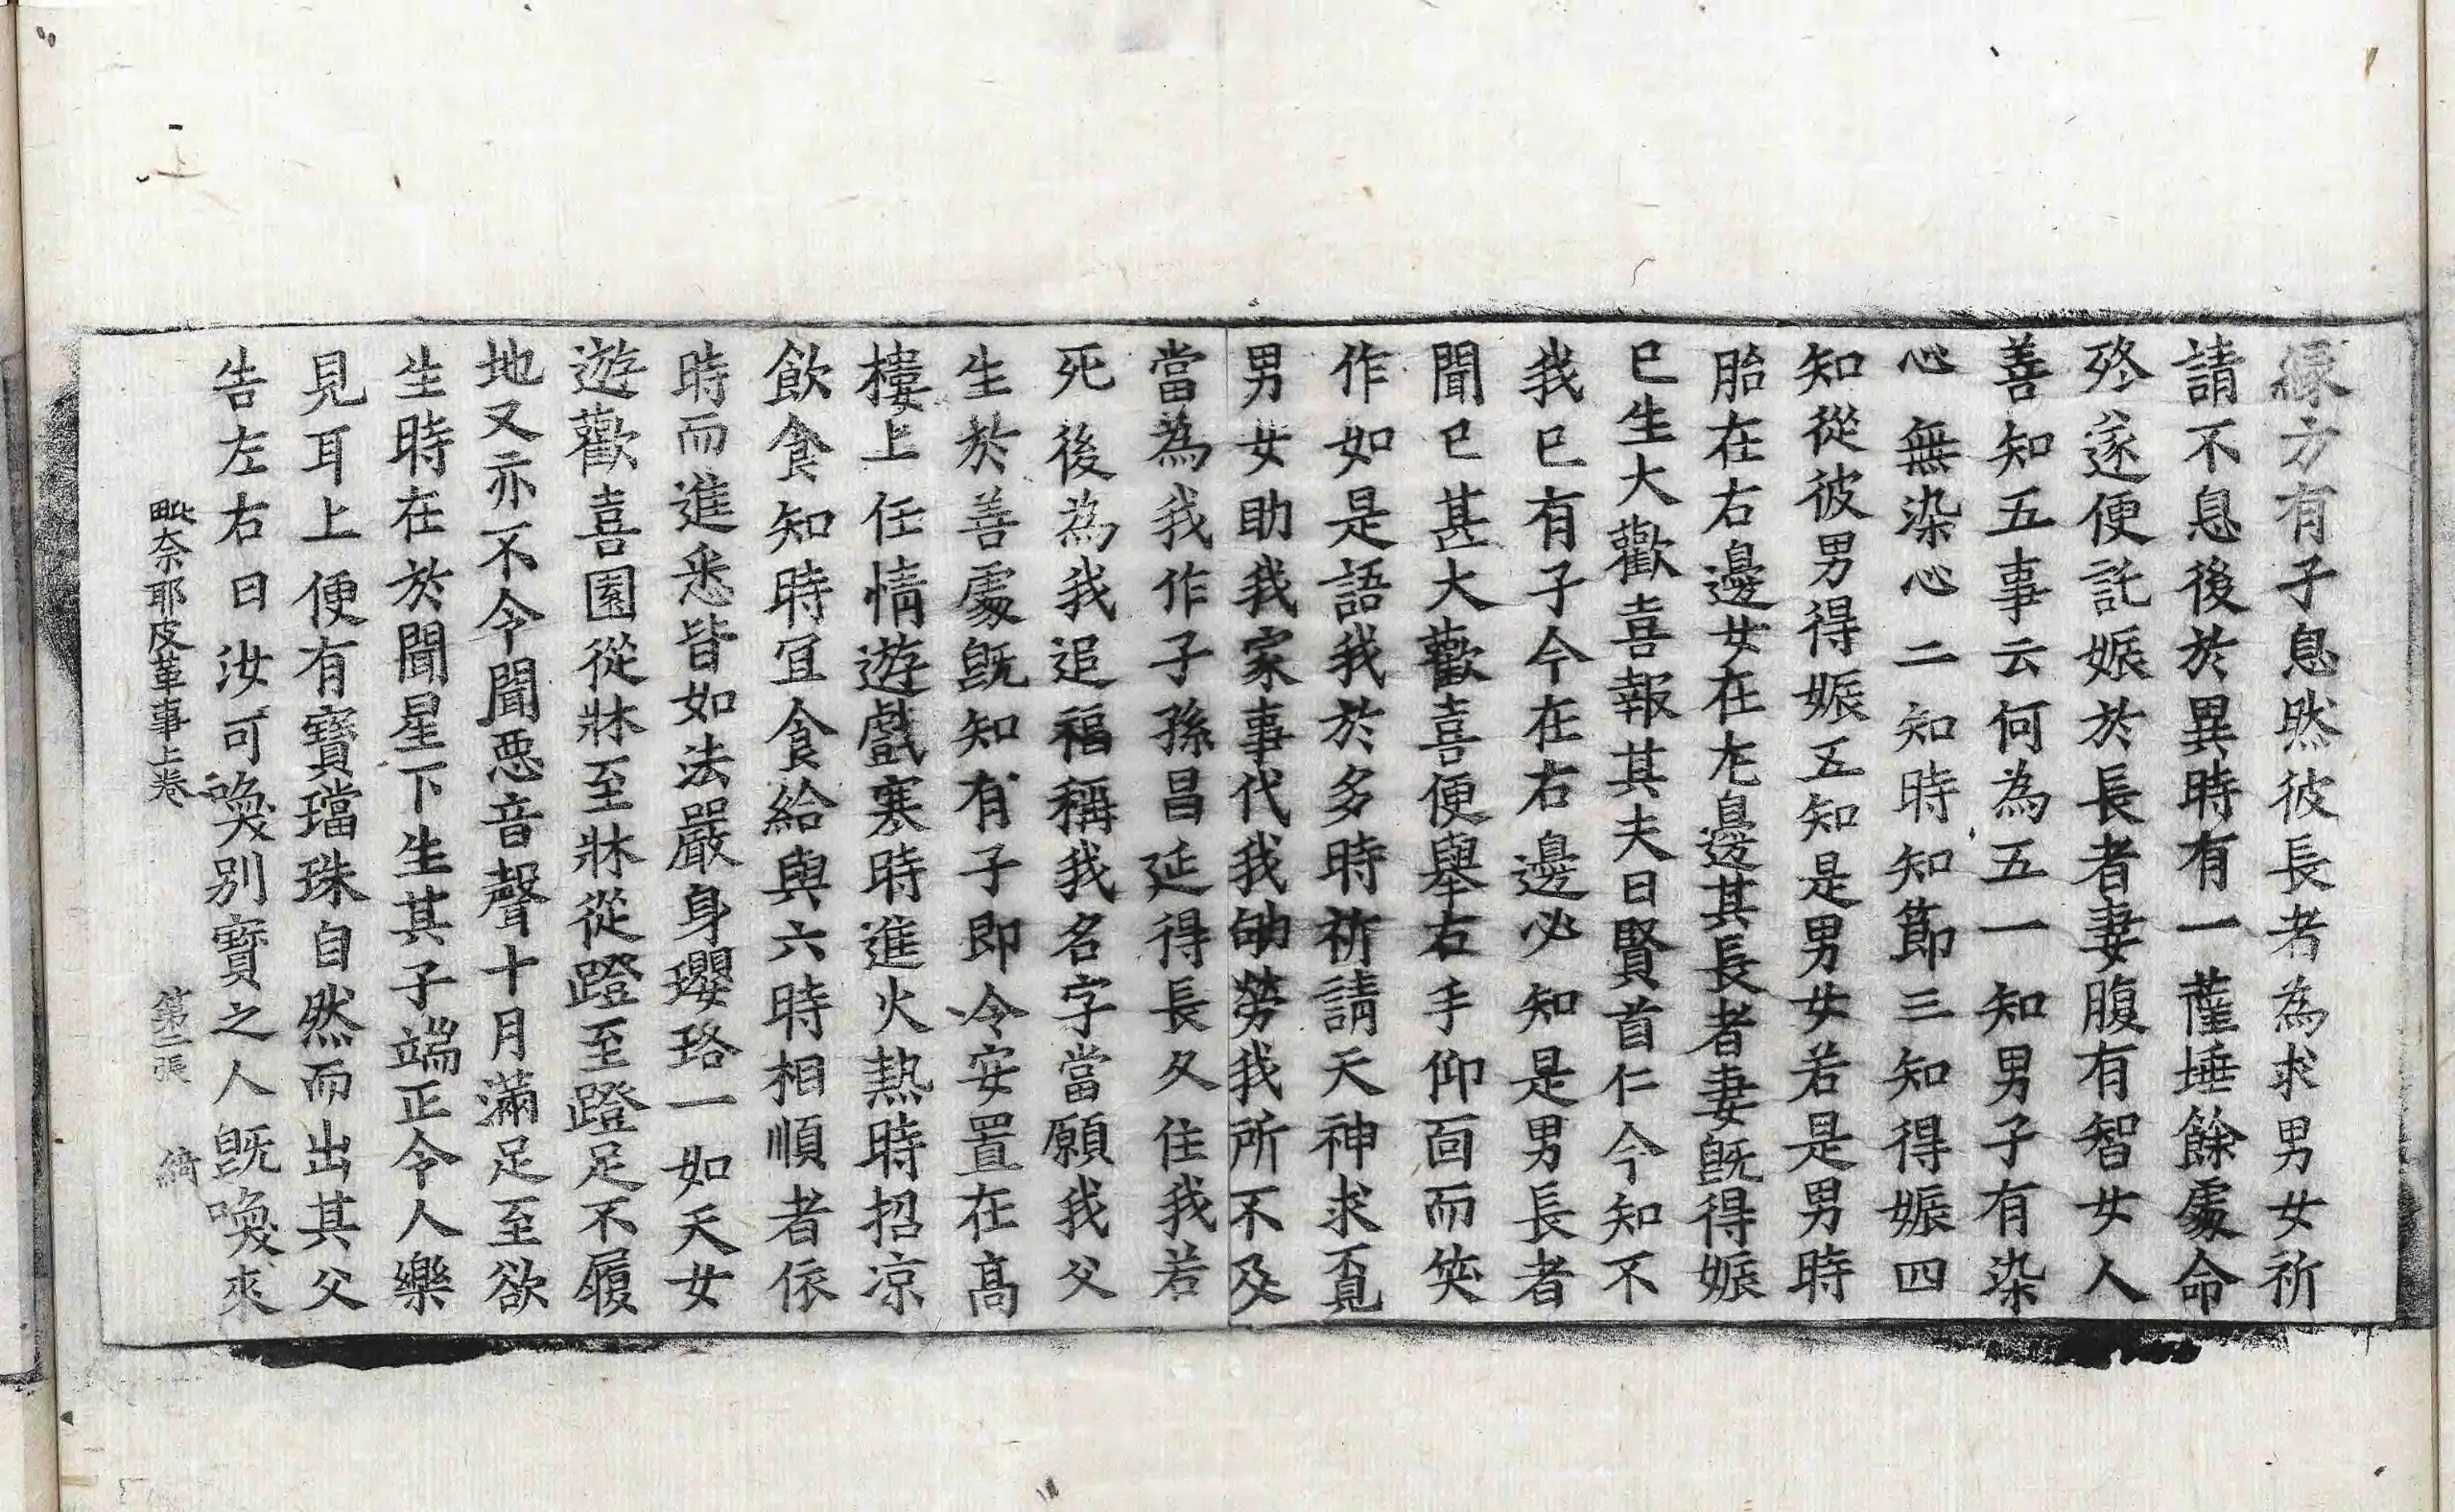 縁方有子息然彼長者為求男女祈
請不息後於異時有一薩埵餘處命
終遂便託娠於長者妻腹有智女人
善知五事云何為五一知男子有染
心無染心二知時知節三知得娠四
知從彼男得娠五知是男女若是男時
胎在右邊女在左邊其長者妻旣得娠
已生大歡喜報其夫曰賢首仁今知不
我已有子今在右邊必知是男長者
聞已甚大歡喜便舉右手仰面而笑
作如是語我於多時祈請天神求覔
男女助我家事代我劬勞我所不及
當為我作子孫昌延得長久住我若
死後為我追福稱我名字當願我父
生於善處旣知有子即令安置在高
樓上任情遊戲寒時進火熱時招凉
飲食知時冝食給與六時相順者依
時而進悉皆如法嚴身瓔珞一如天女
遊歡喜園從牀至牀從蹬至蹬足不履
地又亦不令聞惡音聲十月滿足至欲
生時在於聞星下生其子端正令人樂
見耳上便有寶璫珠自然而出其父
告左右曰汝可喚別寶之人旣喚來
毗奈耶皮革事上卷 第二張 綺